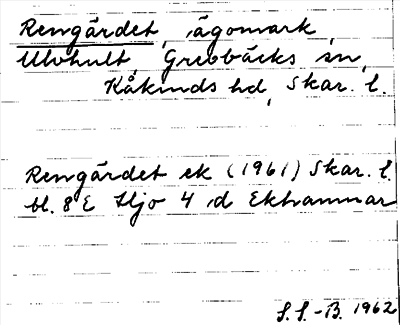 Rengärdet, ägomark,
Ulvhult Grevbäcks sn,
Kåkinds hd, Skar. l.
Rengärdet ek (1961) Skar. l.
bl. 8 E Hjo 4 d Ekhammar
S.S.-B. 1962